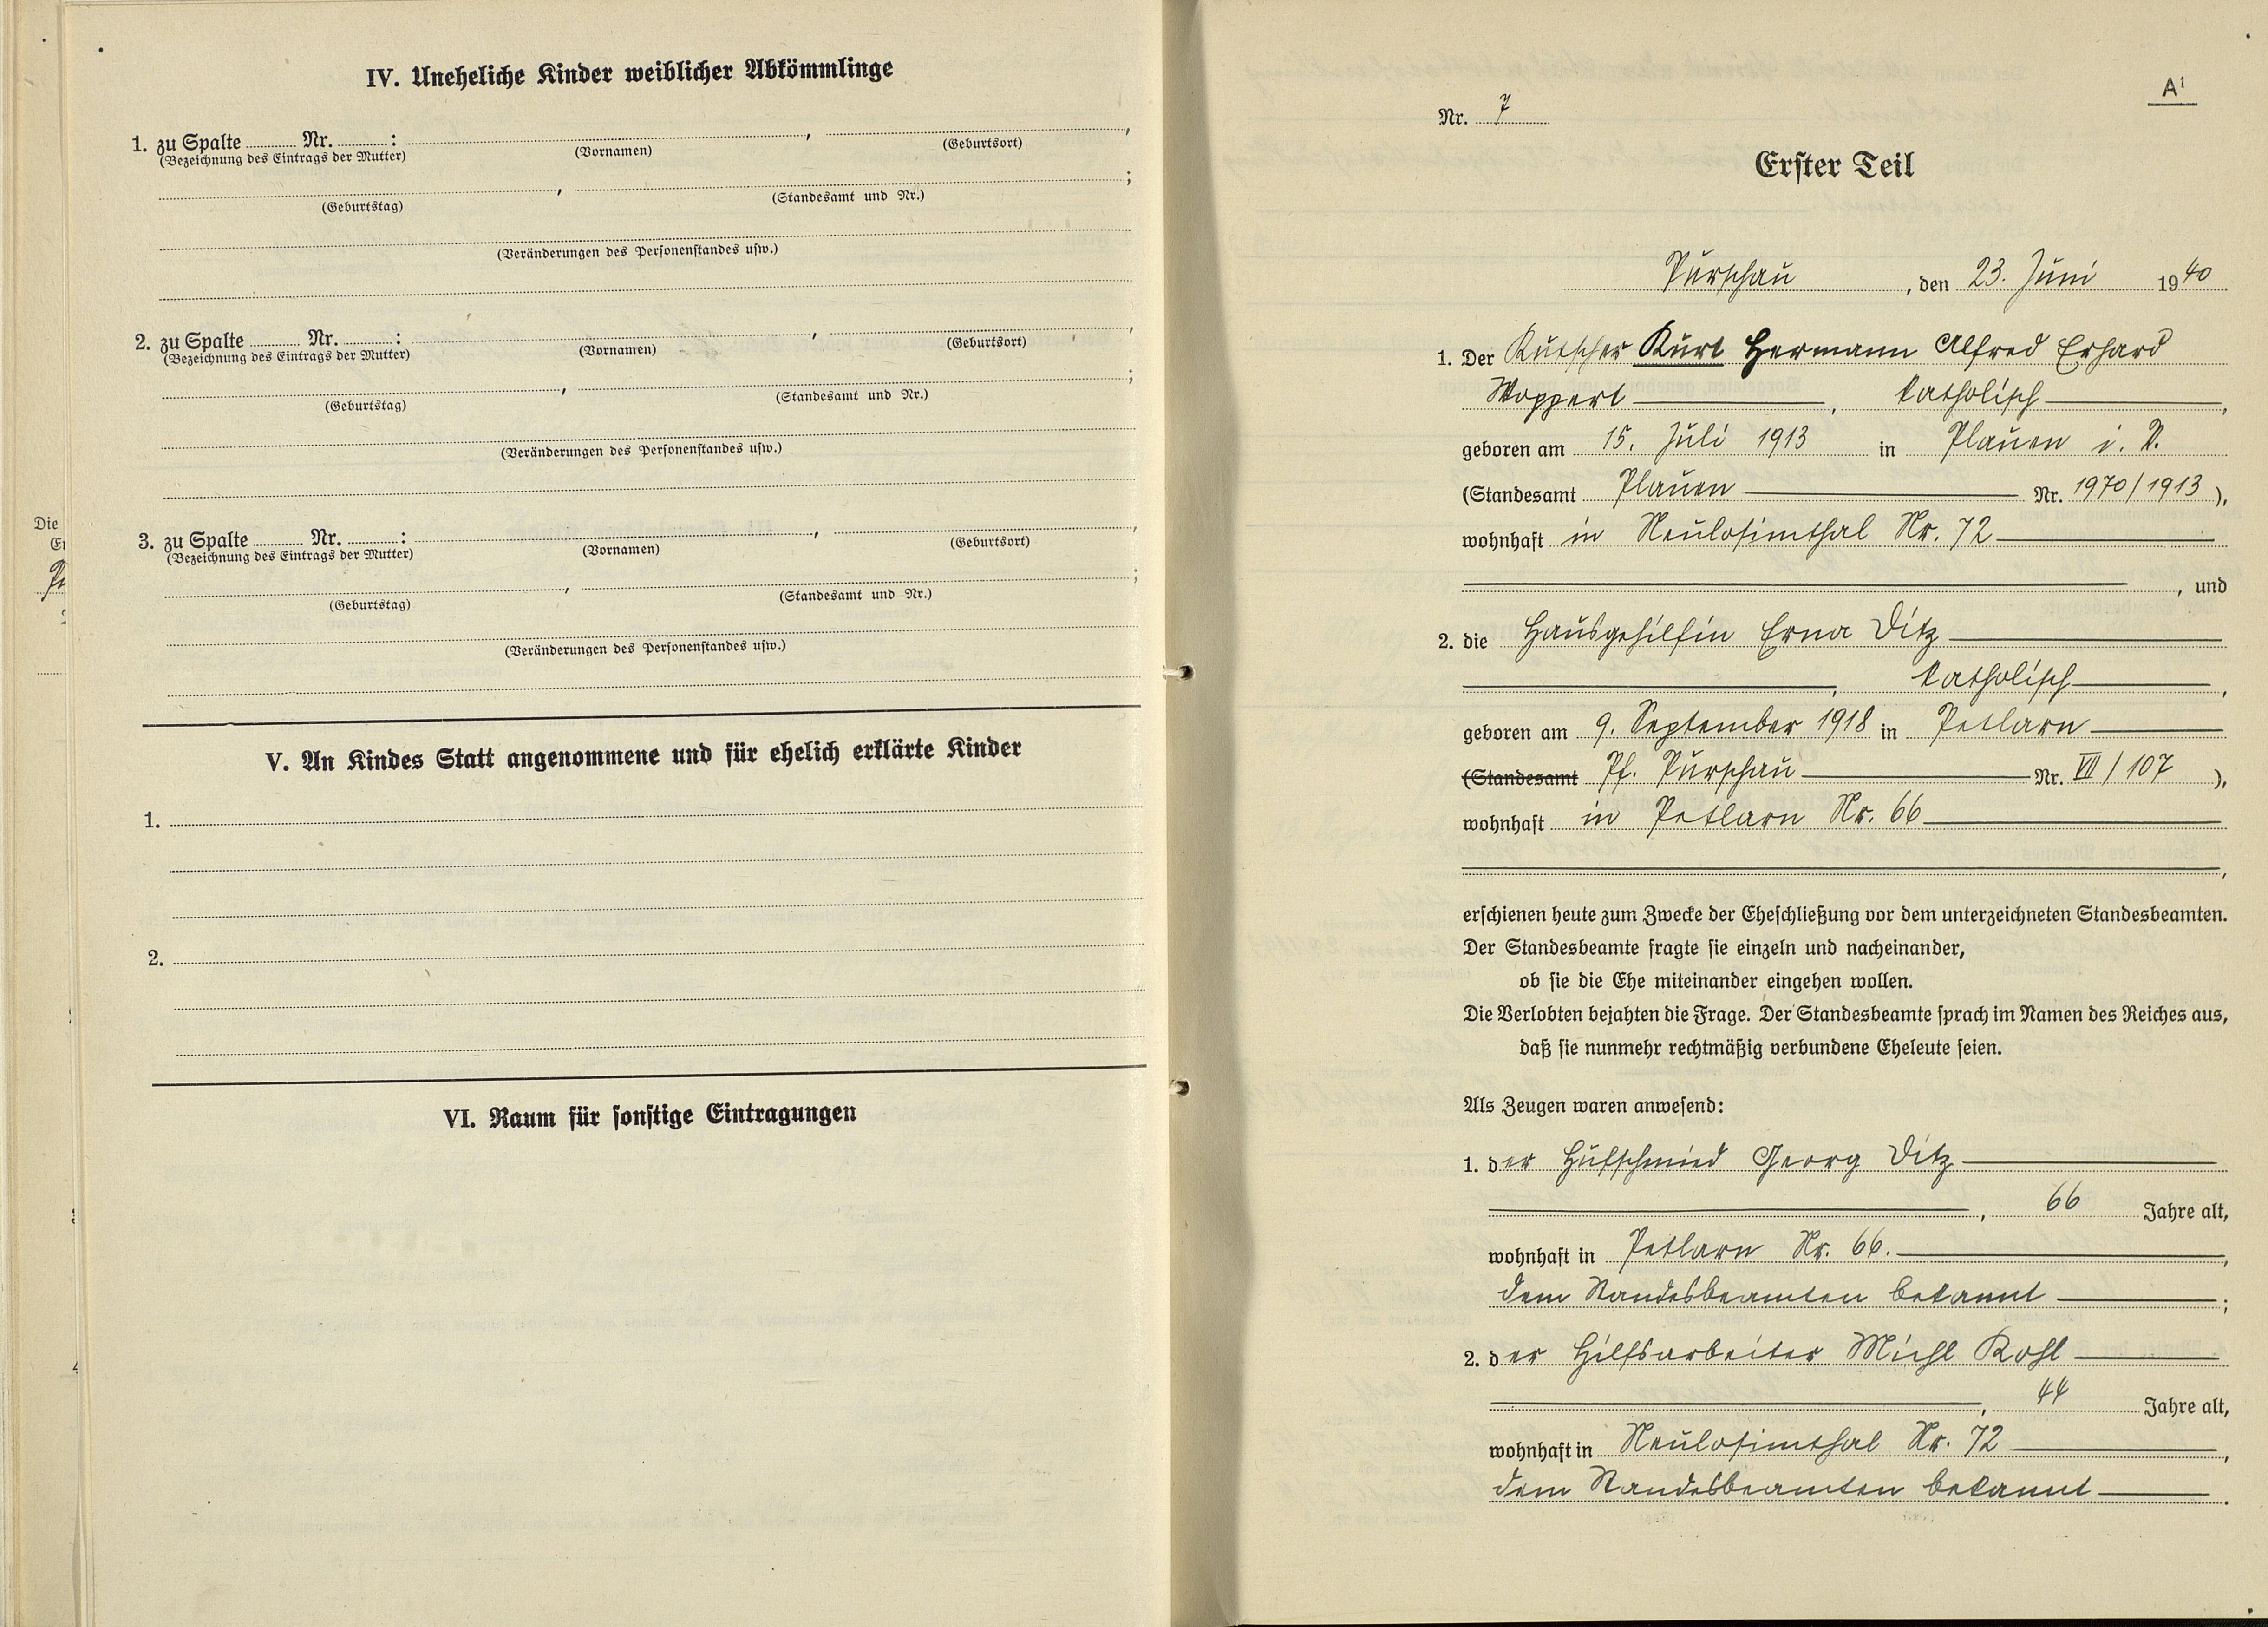 IV. Uneheliche Kinder weiblicher Abkömmlinge
1. zu Spalte ........ Nr. ........ : , ,
(Bezeichnung des Eintrags der Mutter) (Vornamen) (Geburtsort)
, ;
(Geburtstag) (Standesamt und Nr.)
(Veränderungen des Personenstandes usw.)
2. zu Spalte ........ Nr. ........ : , ,
(Bezeichnung des Eintrags der Mutter) (Vornamen) (Geburtsort)
, ;
(Geburtstag) (Standesamt und Nr.)
(Veränderungen des Personenstandes usw.)
3. zu Spalte ........ Nr. ........ : , ,
(Bezeichnung des Eintrags der Mutter) (Vornamen) (Geburtsort)
, ;
(Geburtstag) (Standesamt und Nr.)
(Veränderungen des Personenstandes usw.)
V. An Kindes Statt angenommene und für ehelich erklärte Kinder
1.
2.
VI. Raum für sonstige Eintragungen
Die
A¹
Nr. 7
Erster Teil
Purschau, den 23. Juni 1940
1. Der Kutscher Kurt Hermann Alfred Erhard
Woppert, katholisch,
geboren am 15. Juli 1913 in Plauen i. V.
(Standesamt Plauen Nr. 1970/1913),
wohnhaft in Neulosimthal Nr. 72
, und
2. die Hausgehilfin Erna Ditz
, katholisch,
geboren am 9. September 1918 in Petlarn
(Standesamt Pf. Purschau Nr. VII/107),
wohnhaft in Petlarn Nr. 66
,
erschienen heute zum Zwecke der Eheschließung vor dem unterzeichneten Standesbeamten.
Der Standesbeamte fragte sie einzeln und nacheinander,
ob sie die Ehe miteinander eingehen wollen.
Die Verlobten bejahten die Frage. Der Standesbeamte sprach im Namen des Reiches aus,
daß sie nunmehr rechtmäßig verbundene Eheleute seien.
Als Zeugen waren anwesend:
1. der Hufschmied Georg Ditz
, 66 Jahre alt,
wohnhaft in Petlarn Nr. 66.,
dem Standesbeamten bekannt;
2. der Hilfsarbeiter Michl Kohl
, 44 Jahre alt,
wohnhaft in Neulosimthal Nr. 72,
dem Standesbeamten bekannt.